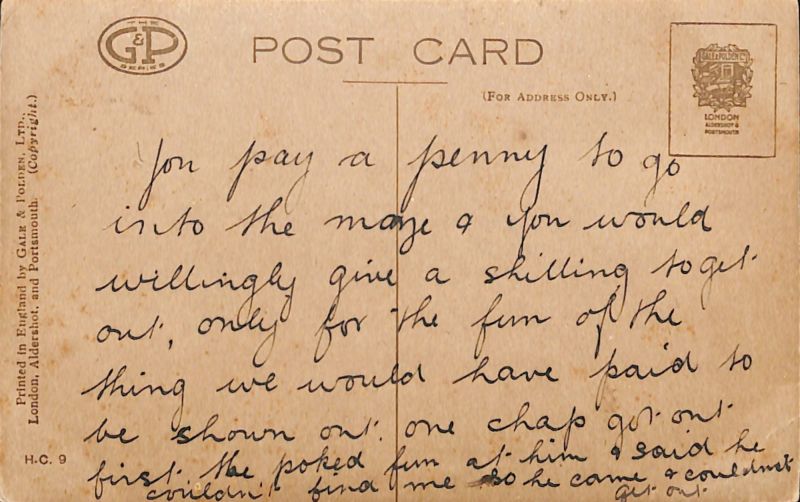 THE
G&P
SERIES
POST CARD
(FOR ADDRESS ONLY.)
GALE & POLDEN LTD
LONDON
ALDERSHOT &
PORTSMOUTH
Printed in England by GALE & POLDEN, LTD.,
London, Aldershot, and Portsmouth. (Copyright.)
H.C. 9
You pay a penny to go
into the maze & you would
willingly give a shilling to get
out, only for the fun of the
thing we would have paid to
be shown out. one chap got out
first. He poked fun at him & said he
couldn't find me so he came & couldnt
get out.